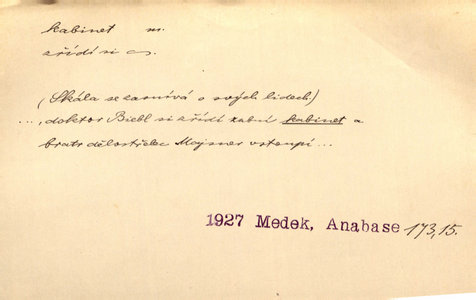 kabinet m.
zřídí si c.
(Skála se zasnívá o svých lidech)
..., doktor Biebl si zřídí zubní kabinet a
bratr dělostřelec Majsner vstoupí ...
1927 Medek, Anabase 173,15.